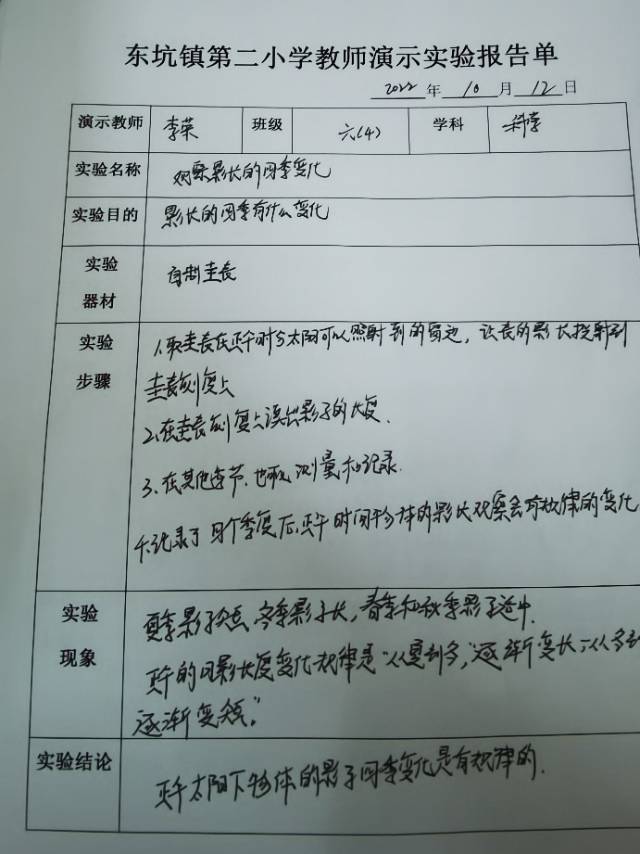 东坑镇第二小学教师演示实验报告单
2022年10月12日
演示教师 李荣 班级 六(4) 学科 科学
实验名称 观察影长的四季变化
实验目的 影长的四季有什么变化
实验器材 自制圭表
实验步骤 1.取圭表在正午时分太阳可以照射到的窗边，让表的影长投射到
圭表刻度上
2.在圭表刻度上读出影子的长度.
3.在其他季节,也可以测量和记录.
4.记录了四个季度后,正午时间物体的影长观察会有规律的变化
实验现象 夏季影子短,冬季影子长,春季和秋季影子适中.
正午的日影长度变化规律是“从夏到冬,”逐渐变长;从冬到
逐渐变短。”
实验结论 正午太阳下物体的影子四季变化是有规律的.